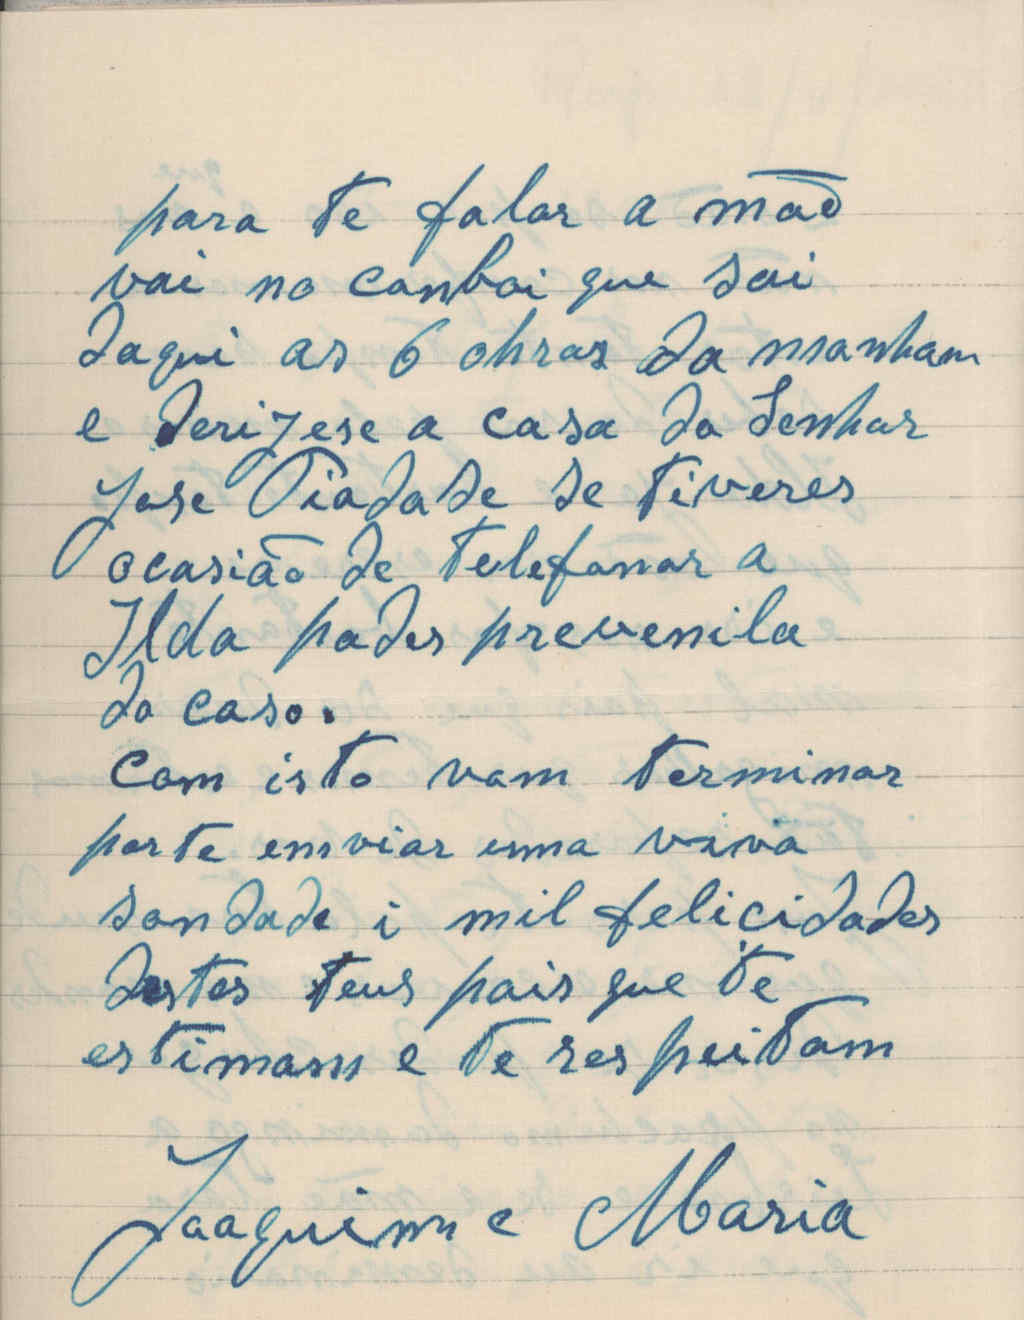 para te falar a mãe
vai no canboi que sai
daqui as 6 ohras da manham
e derijese a casa do Senhor
Jose Piadade se tiveres
ocasião de telefonar a
Ilda podes prevenila
do caso.
Com isto vam terminar
por te emviar uma viva
soudade i mil felicidades
destes teus pais que te
estimam e te respeitam
Joaquim e Maria